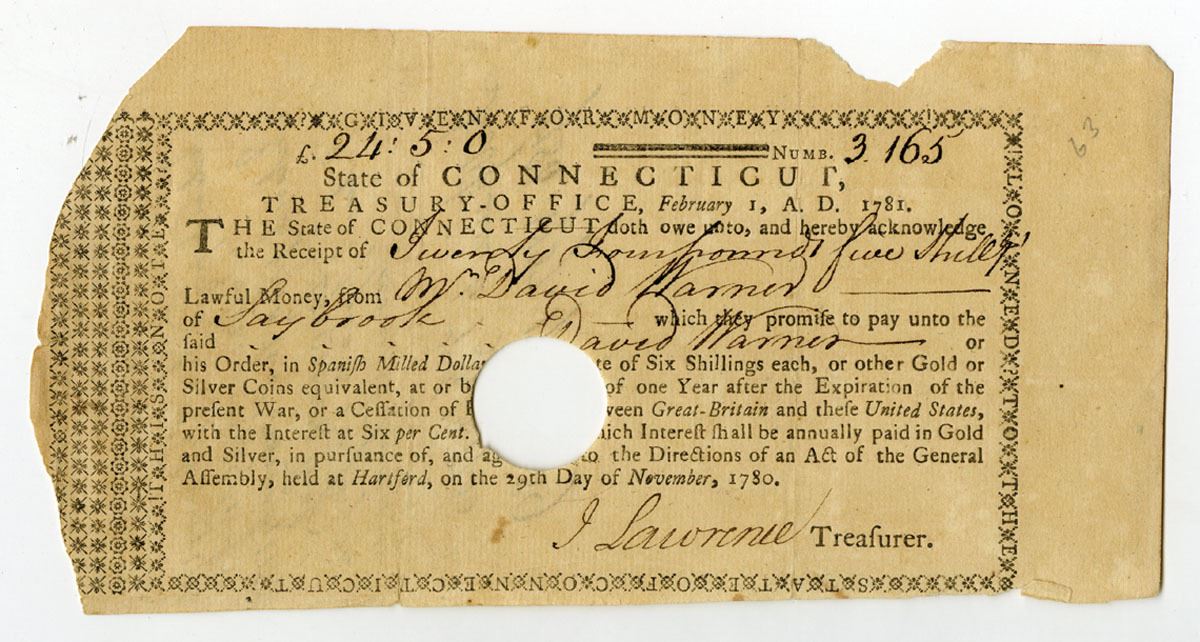 THIS NOTE IS GIVEN FOR MONEY LOANED TO THE STATE OF CONNECTICUT
£. 24: 5: 0 NUMB. 3.165
63
State of CONNECTICUT,
TREASURY-OFFICE, February 1, A. D. 1781.
THE State of CONNECTICUT doth owe unto, and hereby acknowledge
the Receipt of Twenty Four pounds five Shillgs
Lawful Money, from Mr David Warner
of Saybrook which they promise to pay unto the
ſaid David Warner or
his Order, in Spaniſh Milled Dolla te of Six Shillings each, or other Gold or
Silver Coins equivalent, at or b of one Year after the Expiration of the
preſent War, or a Ceſſation of een Great-Britain and theſe United States,
with the Intereſt at Six per Cent. hich Intereſt ſhall be annually paid in Gold
and Silver, in purſuance of, and ag to the Directions of an Act of the General
Aſſembly, held at Hartford, on the 29th Day of November, 1780.
J Lawrence Treaſurer.